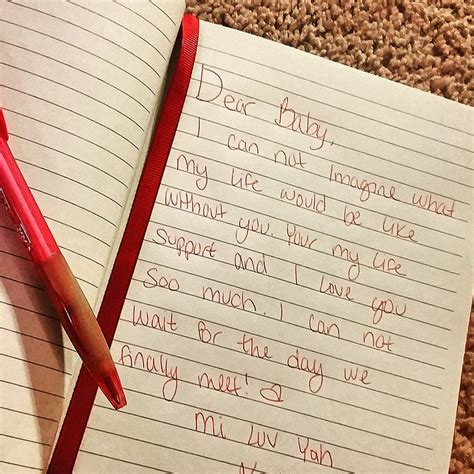 Dear Baby,
I can not Imagine what
my life would be like
without you. Your my life
support and I love you
Soo much. I can not
wait for the day we
finally meet! ♡
Mi Luv Yah